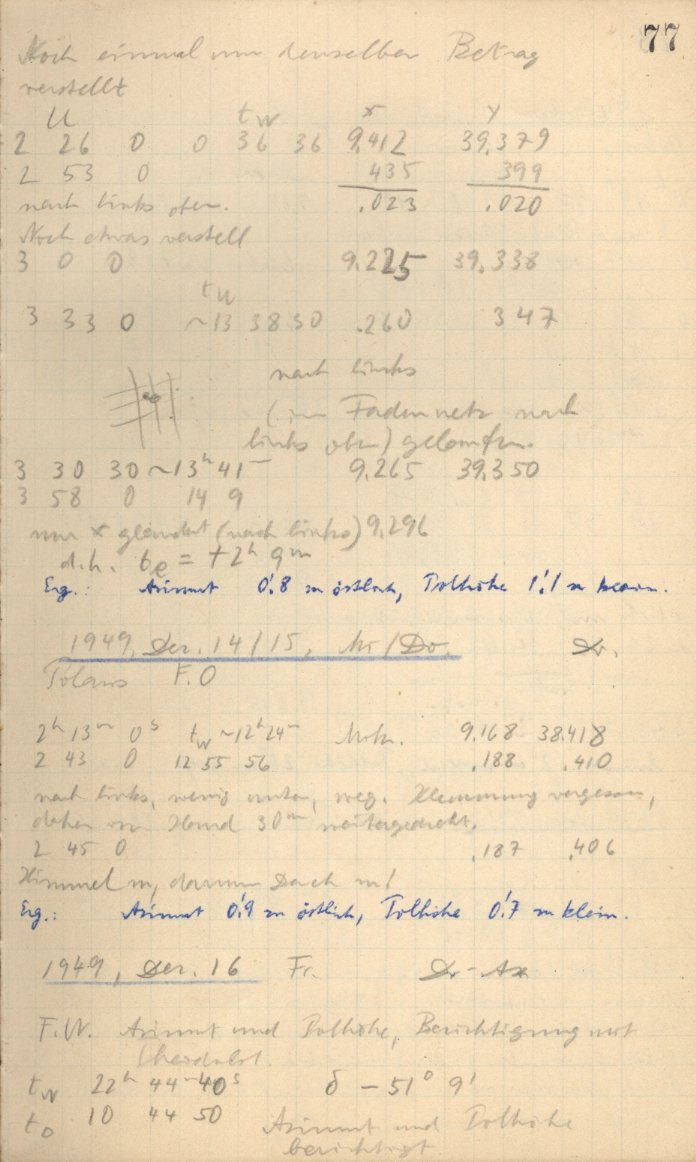 77
Noch einmal um denselben Betrag
verstellt
U tw x y
2 26 0 0 36 36 9.412 39.379
2 53 0 435 399
nach links oben. .023 .020
Noch etwas verstell
3 0 0 9.225 39.338
tu
3 33 0 ~13 38 30 .260 347
nach links
(im Fadennetz nach
links oben) gelaufen.
3 30 30 ~13h 41m 9.265 39.350
3 58 0 14 9
nur x geändert (nach links) 9.296
d.h. te = +2h 9m
Erg.: Azimut 0'.8 zu östlich, Polhöhe 1'.1 zu klein.
1949, Dez. 14/15, Mi/Do. Dr.
Polaris F.O
2h 13m 0s tw ~12h 24m 9.168 38.418
2 43 0 12 55 56 .188 .410
nach links, wenig unten, weg. Klemmung vergessen,
daher von Hand 30m weitergedreht.
2 45 0 .187 .406
Himmel zu, darum Dach zu!
Erg.: Azimut 0'.9 zu östlich, Polhöhe 0'.7 zu klein.
1949, Dez. 16 Fr.
F.W. Azimut und Polhöhe, Berichtigung mit
tw 22h 44m 40s δ - 51° 9'
to 10 44 50 Azimut und Polhöhe
berichtigt